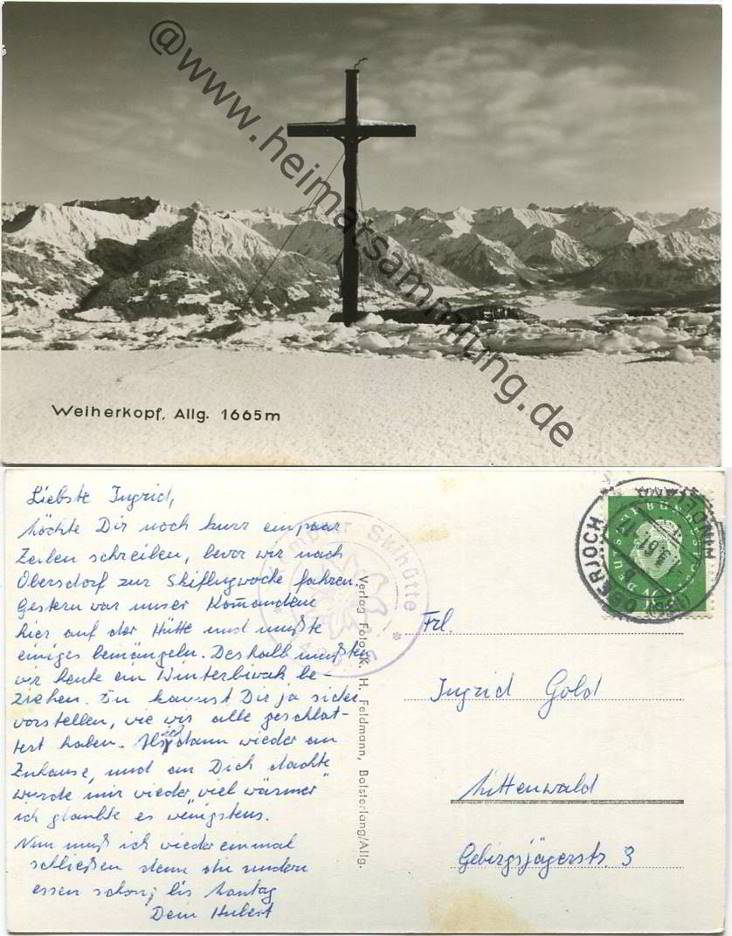 @www.heimatsammlung.de
Weiherkopf, Allg. 1665m
Liebste Ingrid,
Möchte Dir noch kurz ein paar
Zeilen schreiben, bevor wir nach
Obersdorf zur Skiflugwoche fahren.
Gestern war unser
hier auf der Hütte und mußte
einiges bemängeln. Deshalb mußten
wir heute ein Winterbiwak be-
ziehen. Du kannst Dir ja sicher
vorstellen, wie wir alle geschlot-
tert haben. dann wieder an
Zuhause, und an Dich dachte
wurde mir wieder "viel wärmer"
ich glaubte es wenigstens.
Nun muß ich wieder einmal
schließen denn die andern
essen schon, bis Montag
Dein Hubert
Skihütte
Verlag Foto K. H. Feldmann, Bolsterlang/Allg.
OBERJOCH
Frl.
Ingrid Gold
Mittenwald
Gebirgsjägerstr. 3